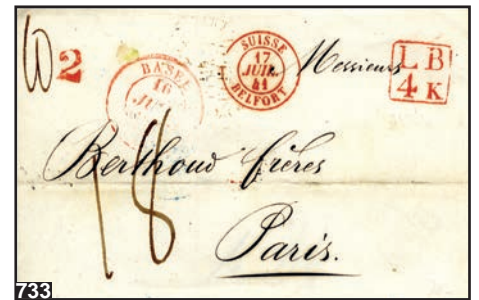 10 2
BASEL
16
SUISSE
17
JUIL
41
BELFORT
Messieurs
L B
4 K
Berthoud frères
18
Paris.
733